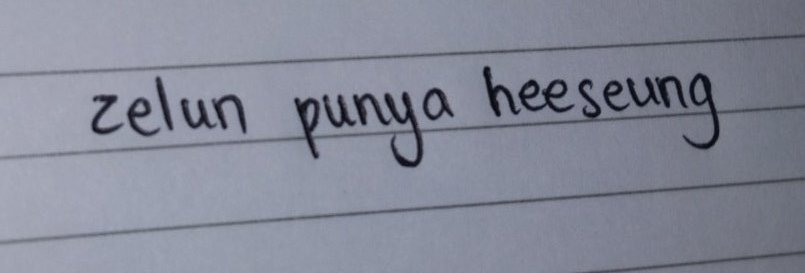 zelun punya heeseung